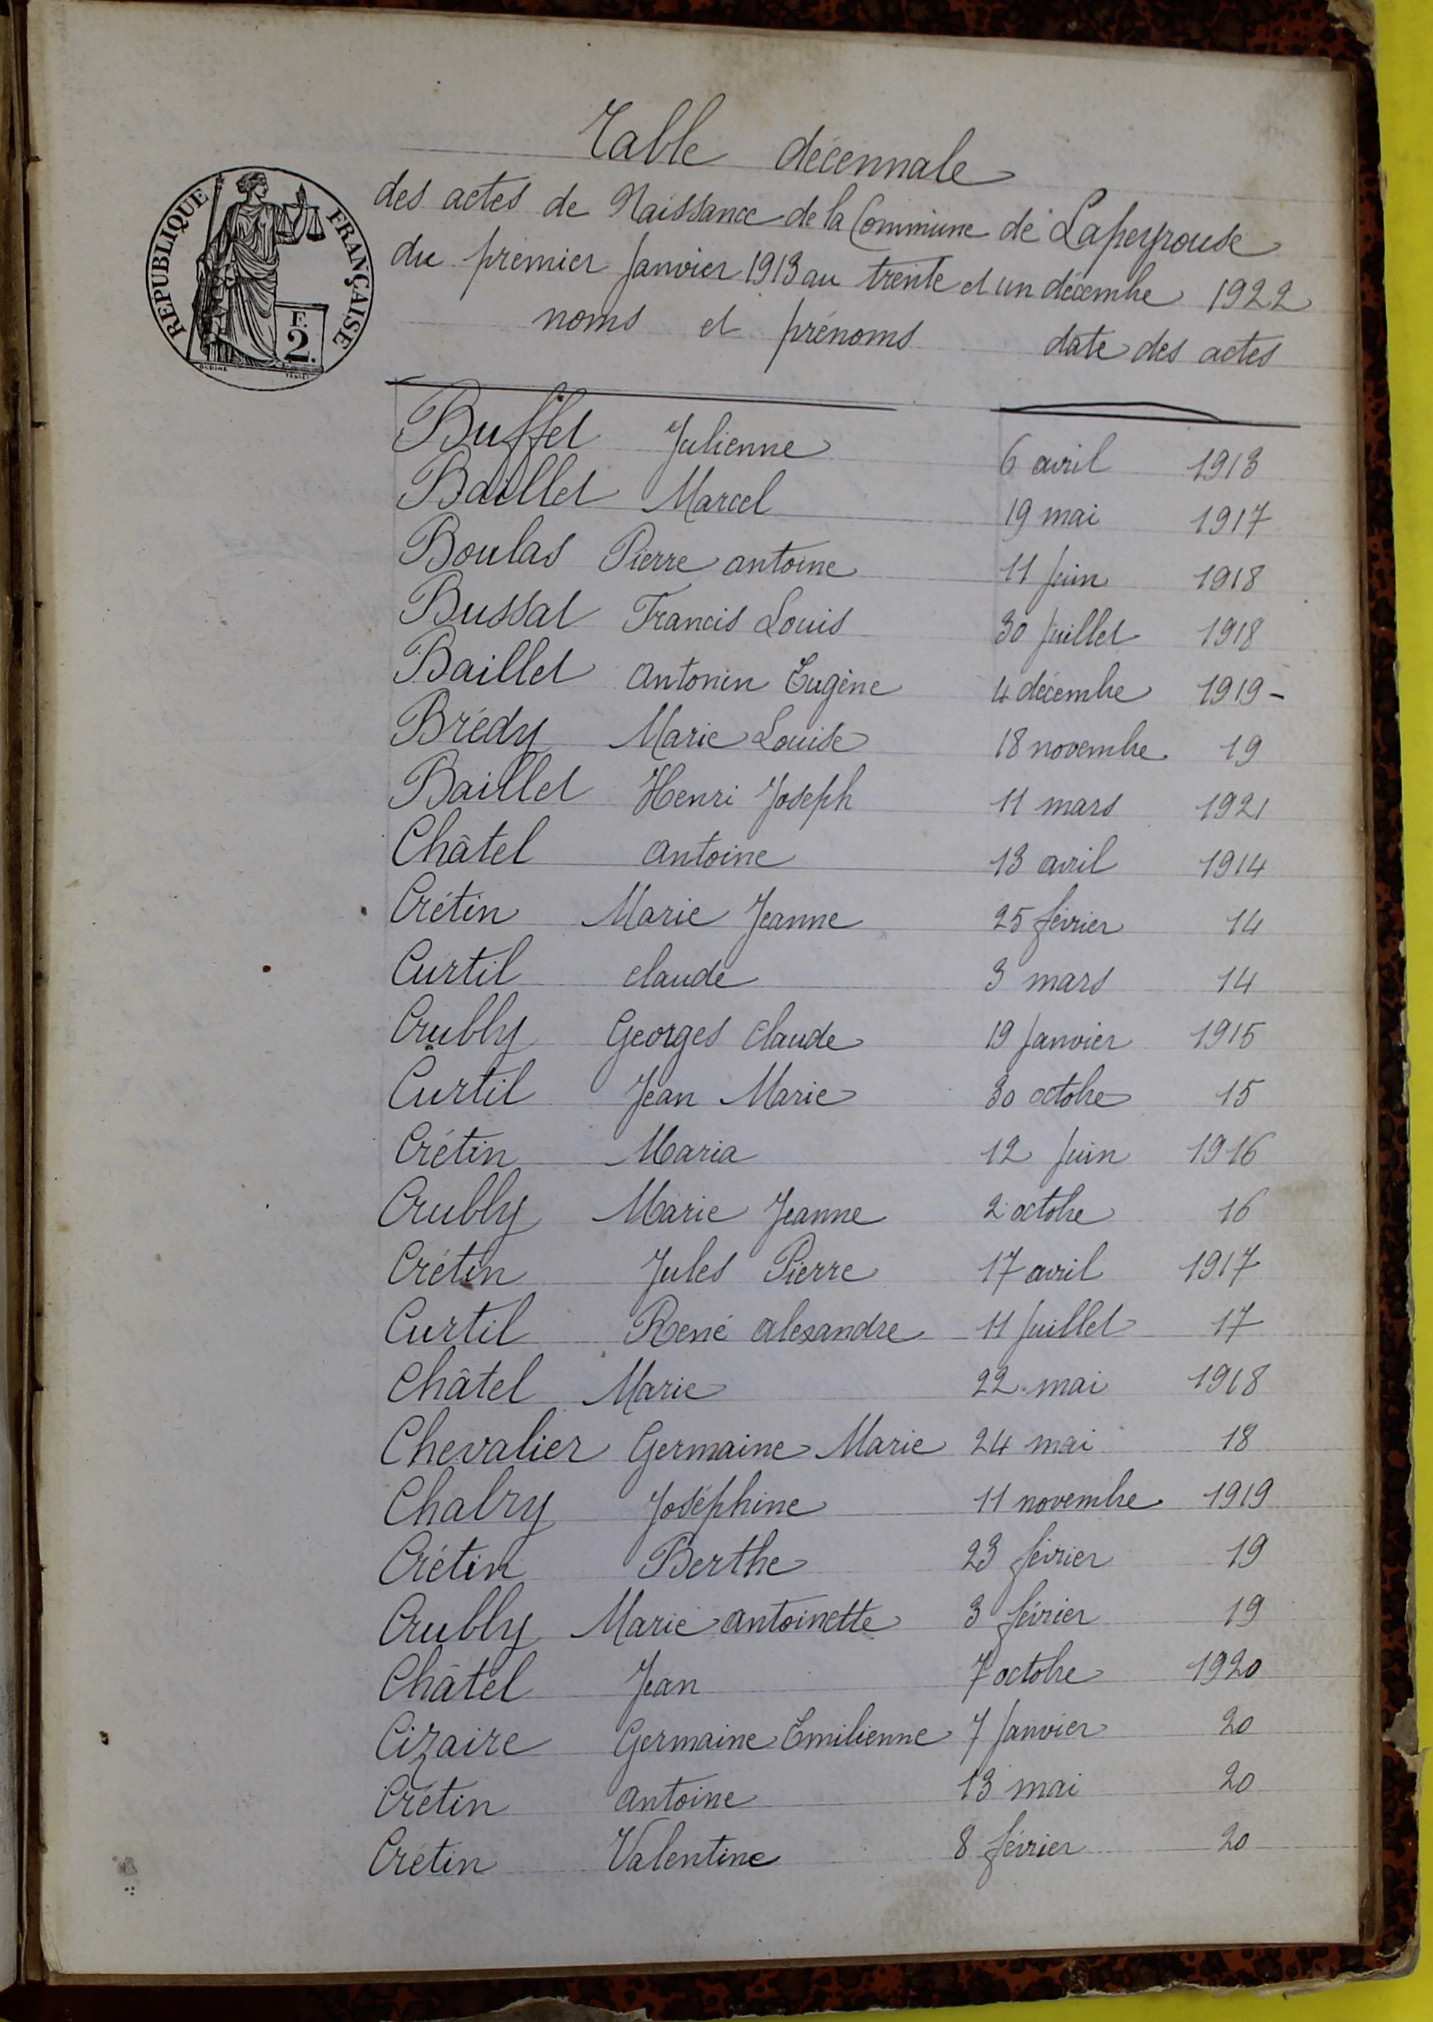 Table décennale
des actes de Naissance de la Commune de Lapeyrouse
du premier Janvier 1913 au trente et un décembre 1922
noms et prénoms date des actes
RÉPUBLIQUE FRANÇAISE
F.
2.
Buffet Julienne 6 avril 1913
Baillet Marcel 19 mai 1917
Boulas Pierre antoine 11 Juin 1918
Bussat Francis Louis 30 Juillet 1918
Baillet antonin Eugène 4 décembre 1919 -
Brédy Marie Louise 18 novembre 19
Baillet Henri Joseph 11 mars 1921
Châtel antoine 13 avril 1914
Crétin Marie Jeanne 25 février 14
Curtil claude 3 mars 14
Crubly Georges claude 19 Janvier 1915
Curtil Jean Marie 30 octobre 15
Crétin Maria 12 Juin 1916
Crubly Marie Jeanne 2 octobre 16
Crétin Jules Pierre 17 avril 1917
Curtil René alexandre 11 Juillet 17
Châtel Marie 22 mai 1918
Chevalier Germaine Marie 24 mai 18
Chabry Joséphine 11 novembre 1919
Crétin Berthe 23 février 19
Crubly Marie antoinette 3 février 19
Châtel Jean 7 octobre 1920
Cizaire Germaine Emilienne 7 Janvier 20
Crétin antoine 13 mai 20
Crétin Valentine 8 février 20